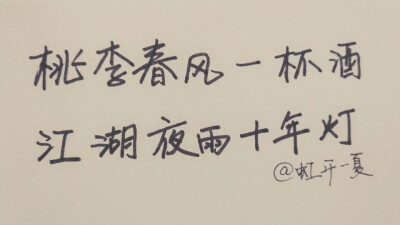 桃李春风一杯酒
江湖夜雨十年灯
@虹开一夏